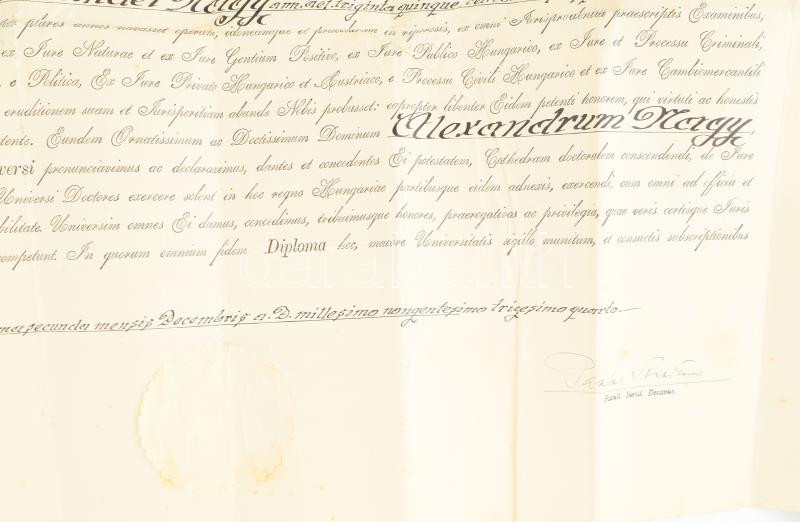 Nagy ann. aet. triginta quinque
plures annos navasset operam, idoneumque et praeclarum in rigorosis, ex omni Jurisprudentia praescriptis Examinibus,
ex Jure Naturae et ex Jure Gentium Positivo, ex Jure Publico Hungarico, ex Jure et Processu Criminali,
e Politica, Ex Jure Privato Hungarico et Austriaco, e Processu Civili Hungarico et ex Jure Cambiomercantili
eruditionem suam et Jurisperitiam abunde Nobis probasset: eapropter libenter Eidem petenti honorem, qui virtuti ac honestis
Eundem Ornatissimum ac Doctissimum Dominum Alexandrum Nagy,
versi pronunciavimus ac declaravimus, dantes et concedentes Ei potestatem, Cathedram doctoralem conscendendi, de Jure
Universi Doctores exercere solent in hoc regno Hungariae partibusque eidem adnexis, exercendi, cum omni ad officia et
bilitate. Universim omnes Ei damus, concedimus, tribuimusque honores, praerogativas ac privilegia, quae veris certisque Juris
competunt. In quorum omnium fidem Diploma hoc, maiore Universitatis sigillo munitum, et consuetis subscriptionibus
masecunda mensis Decembris a. D. millesimo nongentesimo trigesimo quarto.
darabanth
Decanus.